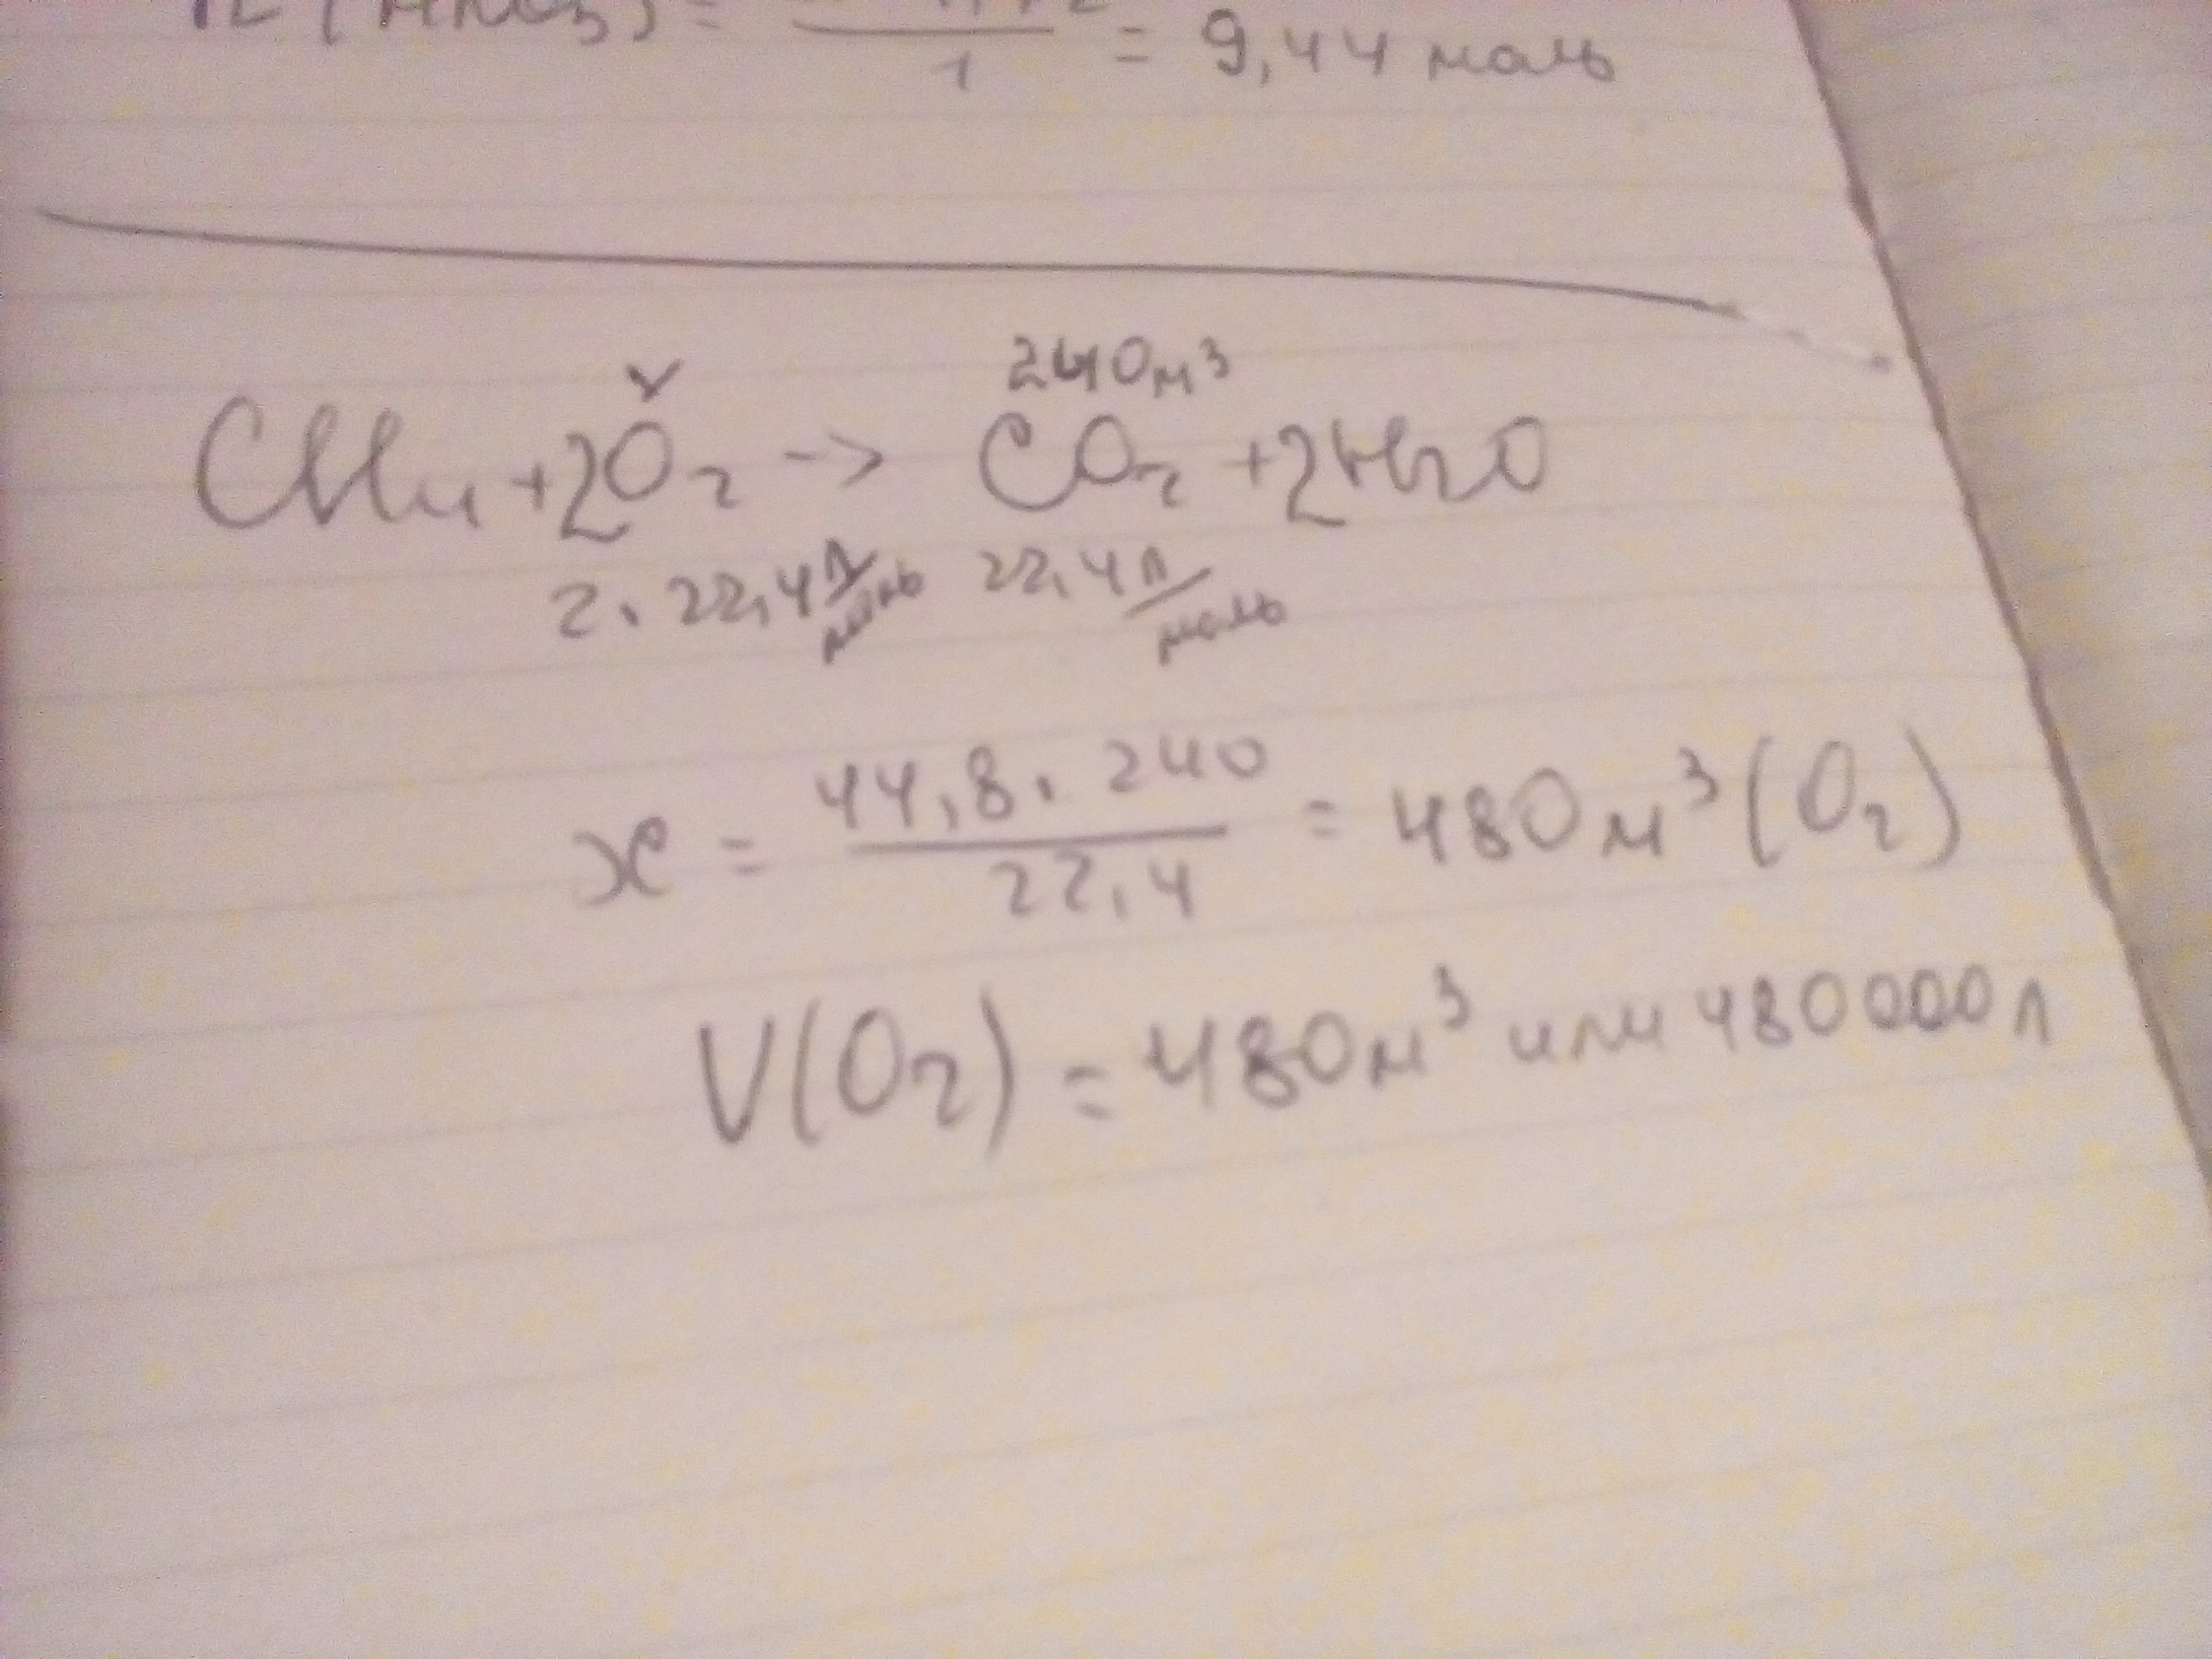 = 9,44 моль
1
240 м³
CH₄ + 2O₂ -> CO₂ + 2H₂O
2 · 22,4 л/моль 22,4 л/моль
x = 44,8 · 240 / 22,4 = 480 м³ (O₂)
V(O₂) = 480 м³ или 480000 л